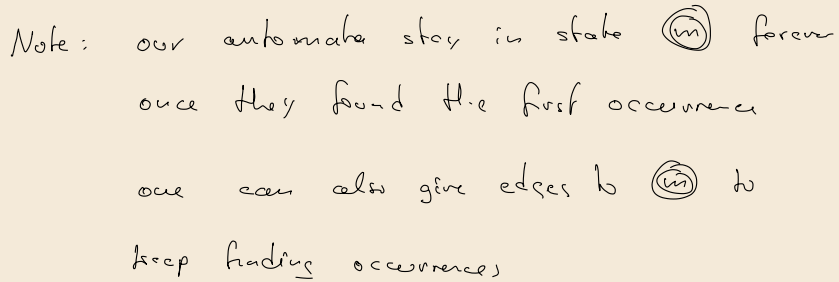 Note: our automata stay in state m forever
once they found the first occurrence
one can also give edges to m to
keep finding occurrences